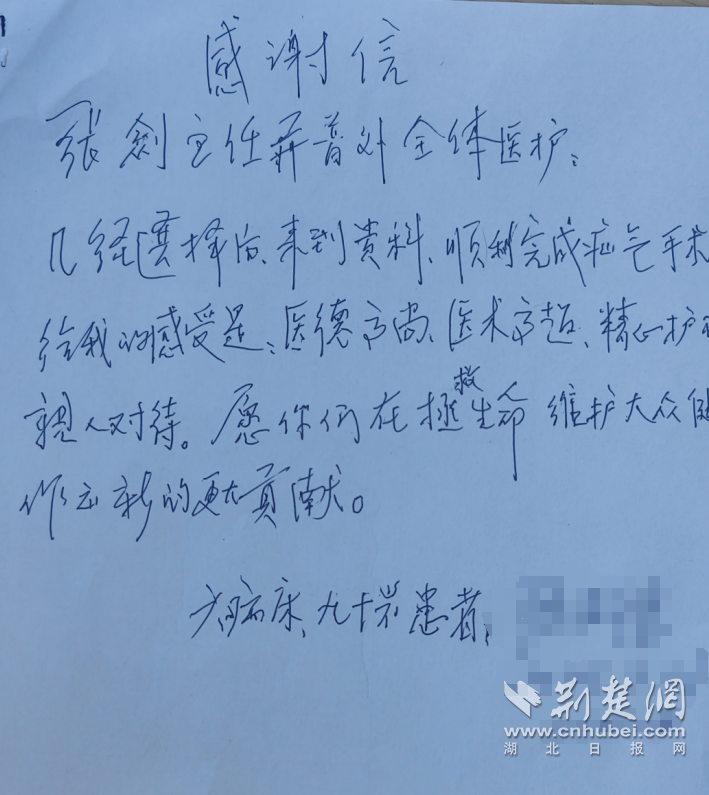 感谢信
張剑主任并普外全体医护：
几经選择后、来到贵科、顺利完成疝气手术
给我的感受是：医德高尚、医术高超、精心护
親人对待。愿你们在拯救生命 维护大众健
作出新的更大貢献。
六病床、九十岁患者：
荆楚網
www.cnhubei.com
湖北日报网